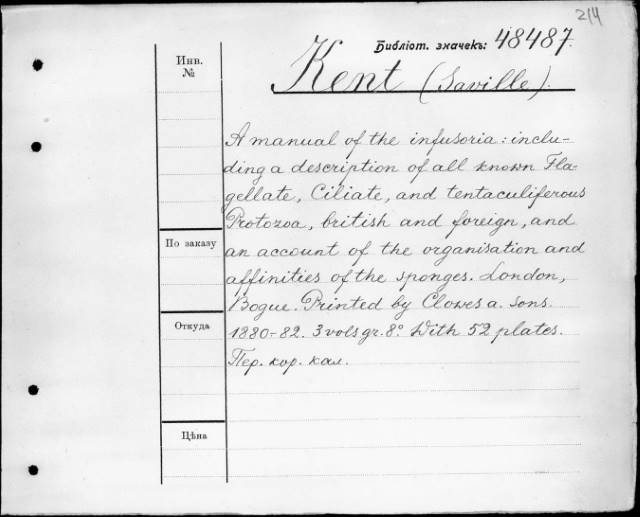 214
Библіот. значекъ: 48487.
Инв.
№
Kent (Saville).
A manual of the infusoria: inclu-
ding a description of all known Fla-
gellate, Ciliate, and tentaculiferous
Protozoa, british and foreign, and
an account of the organisation and
По заказу
affinities of the sponges. London,
Bogue. Printed by Clowes a. Sons.
Откуда
1880-82. 3 vols gr. 8º. With 52 plates.
Пер. кор. кал.
Цѣна